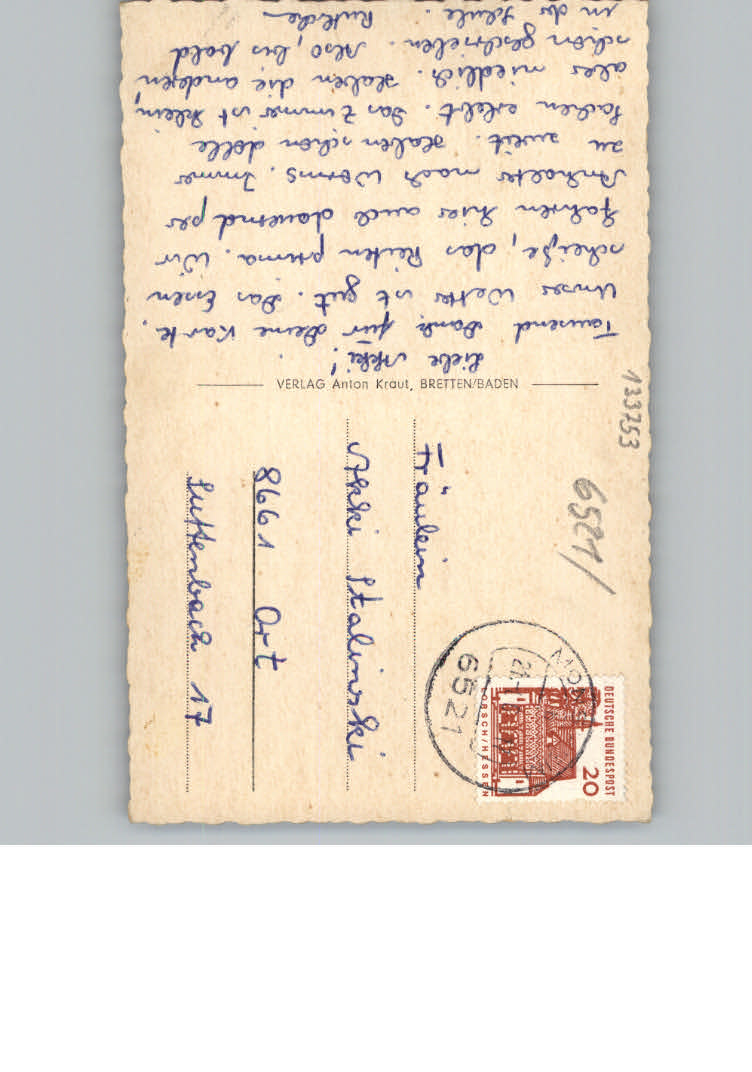 Liebe Akki!
Tausend Dank für Deine Karte.
Unser Wetter ist gut. Das Essen
scheiße, das Reiten prima. Wir
fahren hier auch dauernd per
Anhalter nach Worms. Immer
zu zweit. Haben schon dolle
Sachen erlebt. Das Zimmer ist klein,
aber niedlich. Haben die anderen
schon geschrieben. Also, bis bald
in der Schule.
VERLAG Anton Kraut, BRETTEN/BADEN
Fräulein
Akki Stalinski
8661 Ort
Suttenbach 17
133753
6521/
6521
DEUTSCHE BUNDESPOST
20
LORSCH/HESSEN